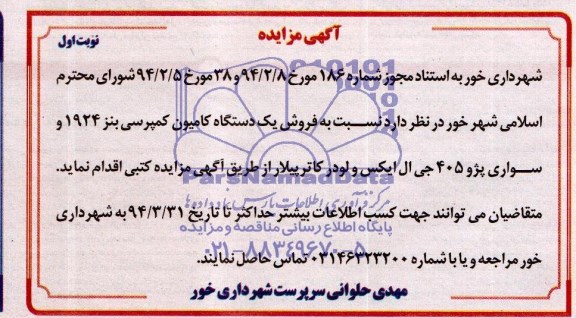 آگهی مزایده
نوبت اول
شهرداری خور به استناد مجوز شماره ۱۸۶ مورخ ۹۴/۲/۸ و ۳۸ مورخ ۹۴/۲/۵ شورای محترم
اسلامی شهر خور در نظر دارد نسبت به فروش یک دستگاه کامیون کمپرسی بنز ۱۹۲۴ و
سواری پژو ۴۰۵ جی ال ایکس و لودر کاترپیلار از طریق آگهی مزایده کتبی اقدام نماید.
ParsNamadData
مرکز فرآوری اطلاعات پارس نماد داده ها
متقاضیان می توانند جهت کسب اطلاعات بیشتر حداکثر تا تاریخ ۹۴/۳/۳۱ به شهرداری
پایگاه اطلاع رسانی مناقصه و مزایده
۰۲۱-۸۸۳۴۹۶۷۰-۵
خور مراجعه و یا با شماره ۰۳۱۴۶۳۲۳۲۰۰ تماس حاصل نمایند.
مهدی حلوانی سرپرست شهرداری خور